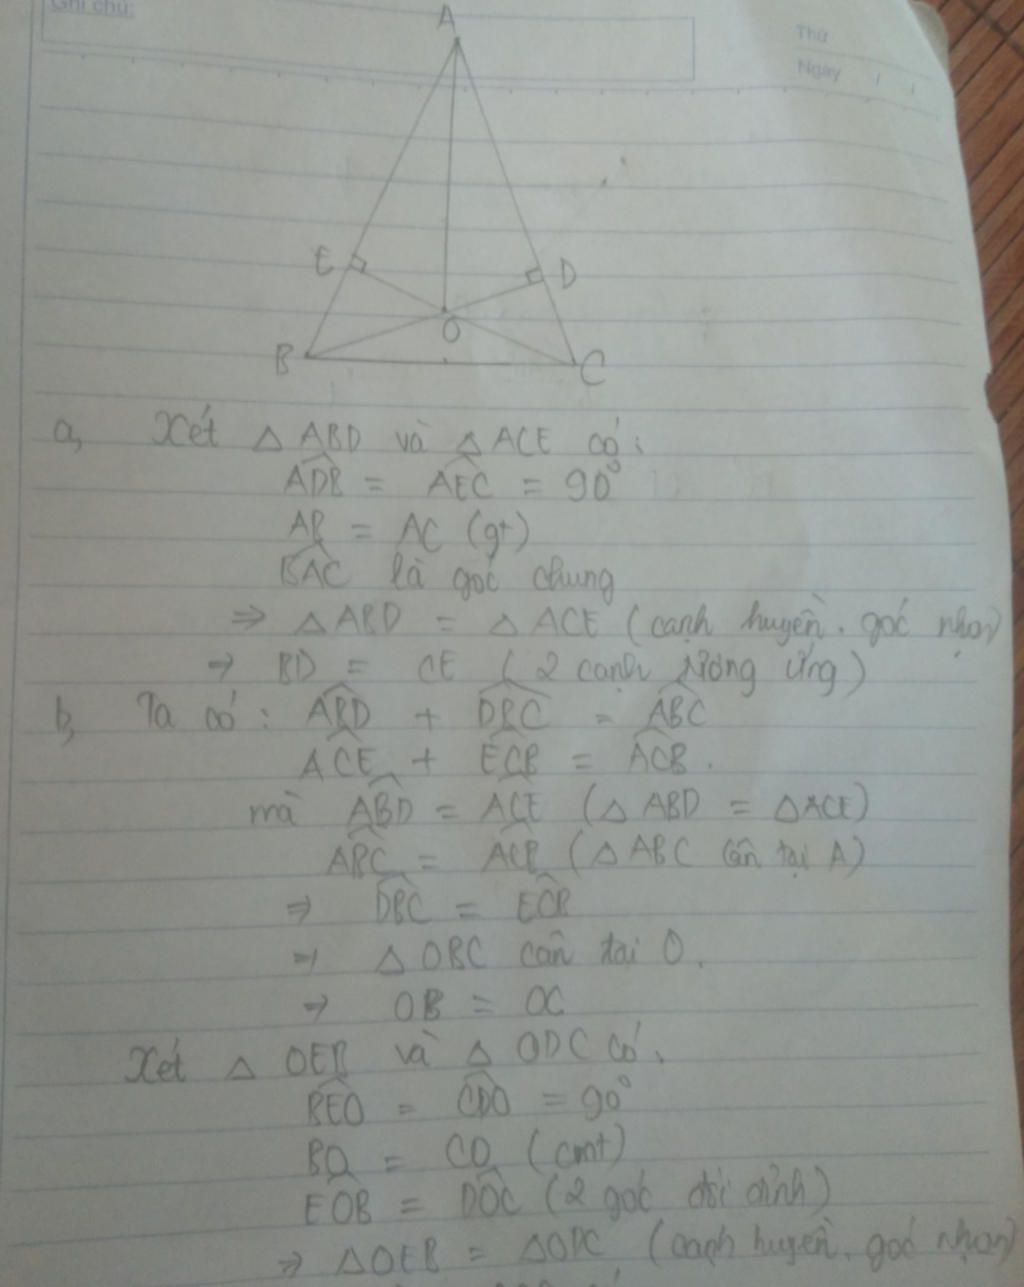 Ghi chú:
Thứ
Ngày / /
A
E
D
O
B
C
a, Xét △ ABD và △ ACE có:
ADB = AEC = 90°
AB = AC (gt)
BAC là góc chung
⇒ △ ABD = △ ACE (cạnh huyền. góc nhọn)
⇒ BD = CE (2 cạnh tương ứng)
b, Ta có: ABD + DBC = ABC
ACE + ECB = ACB.
mà ABD = ACE (△ ABD = △ ACE)
ABC = ACB (△ ABC cân tại A)
⇒ DBC = ECB
⇒ △ OBC cân tại O.
⇒ OB = OC
Xét △ OEB và △ ODC có.
BEO = CDO = 90°
BO = CO (cmt)
EOB = DOC (2 góc đối đỉnh)
⇒ △OEB = △ODC (cạnh huyền. góc nhọn)